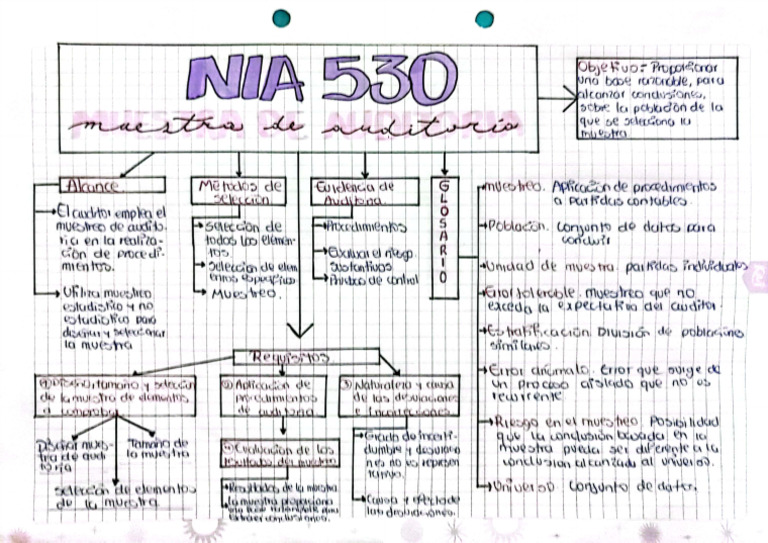 NIA 530
muestra de auditoría
Objetivo: Proporcionar
una base razonable, para
alcanzar conclusiones,
sobre la población de la
que se selecciona la
muestra
Alcance
El auditor emplea el
muestreo de audito-
ria en la realiza-
ción de procedi-
mientos.
Utiliza muestreo
estadístico y no
estadistico para
diseñar y seleccionar
la muestra
Métodos de
selección
Selección de
todos los elemen-
tos.
Seleccion de elem
entos especificos
Muestreo.
Evidencia de
Auditoria
Procedimientos
Evaluar el riesgo.
sustantivos
Pruebas de control
GLOSARIO
muestreo. Aplicación de procedimientos
a partidas contables.
Población. Conjunto de datos para
concluir
Unidad de muestra. partidas individuales
Error tolerable. muestreo que no
exceda la expectativa del auditor.
Estratificación. División de poblaciones
similares.
Error anómalo. Error que surge de
un proceso aislado que no es
recurrente
Riesgo en el muestreo. Posibilidad
que la conclusión basada en la
muestra pueda ser diferente a la
conclusion alcanzada al universo.
Universo Conjunto de datos.
Requisitos
① Diseño, tamaño y selección
de la muestra de elementos
a comprobar
Diseñar mues-
tra de audi
toria
Tamaño de
la muestra
selección de elementos
de la muestra
② Aplicación de
procedimientos
de auditoria
Evaluación de los
resultados del muestreo
Resultados de la muestra
la muestra proporciona
una base razonable para
extraer conclusiones.
③ Naturaleza y causa
de las desviaciones
e incorrecciones
Grado de incerti-
dumbre y desviacio
nes no es represen
tativo.
Causa y efecto de
las desviaciones.